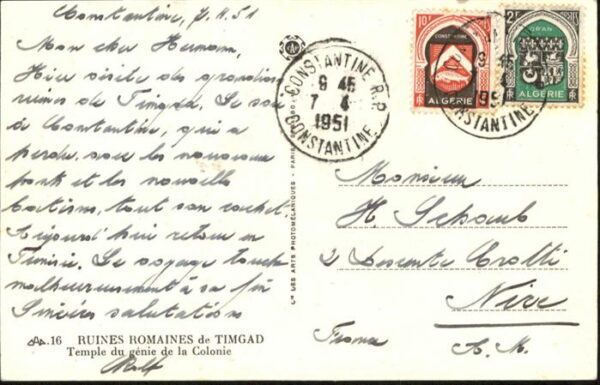 Constantine, 7.4.51
Mon cher Hermann,
Hier visite des grandioses
ruines de Timgad. Ce soir
à Constantine, qui a
perdu avec les nouveaux
ponts et les nouvelles
bâtisses, tout son cachet.
Aujourd'hui retour en
Tunisie. Le voyage touche
malheureusement à sa fin
Sincères salutations
16 RUINES ROMAINES de TIMGAD
Temple du génie de la Colonie
Cie DES ARTS PHOTOMÉCANIQUES - PARIS
CONSTANTINE R.P.
9 45
7 4
1951
CONSTANTINE
10F
CONSTANTINE
ALGÉRIE
2F
ORAN
ALGERIE
9 45
4
1951
CONSTANTINE
Monsieur
H. Schaub
2 Descente Crotti
Nice
France A. M.